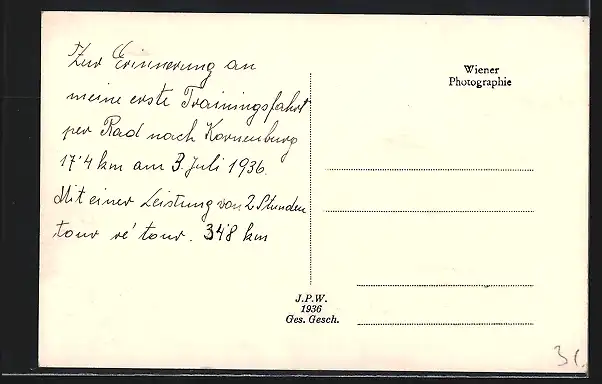 Zur Erinnerung an
meine erste Trainingsfahrt
per Rad nach Korneuburg
17·4 km am 3. Juli 1936.
Mit einer Leistung von 2 Stunden
tour re' tour. 34'8 km
Wiener
Photographie
J.P.W.
1936
Ges. Gesch.